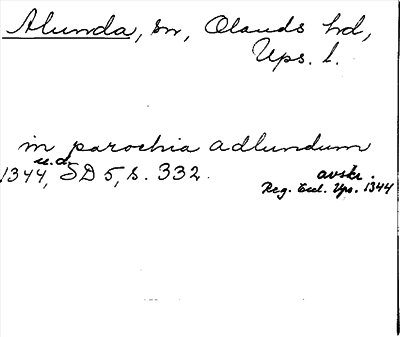 Alunda, sn, Olands hd,
Ups. l.
in parochia adlundum
u.d.
1344, SD 5, s. 332.
avskr.
Reg. Eccl. Ups. 1344